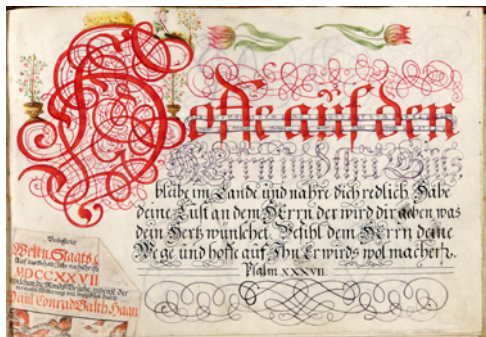 6.
Hoffe auf den
HErrn und thu Guts
bleibe im Lande und nähre dich redlich Habe
deine Lust an dem HErrn der wird dir geben was
dein Hertz wünschet. Befihl dem HErrn deine
Wege und hoffe auf Ihn Er wirds wol machen.
Psalm XXXVII.
Verbesserter
Welt u. Staats C
MDCCXXVII
Paul Conrad Balth. Haan